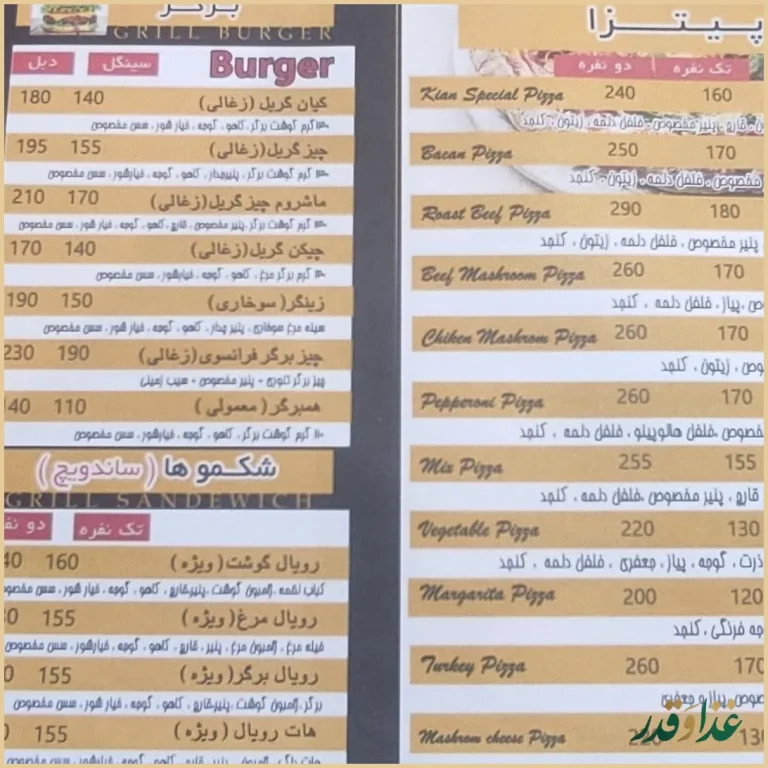 برگر
GRILL BURGER
Burger
سینگل دبل
کیان گریل (زغالی) 140 180
گرم گوشت برگر، کاهو ، گوجه ، خیار شور ، سس مخصوص
چیز گریل(زغالی) 155 195
گرم گوشت برگر ، پنیرچدار، کاهو ، گوجه ، خیارشور، سس مخصوص
ماشروم چیز گریل(زغالی) 170 210
گرم گوشت برگر ،پنیر مخصوص ، قارچ ، کاهو ، گوجه ، خیارشور ، سس مخصوص
چیکن گریل(زغالی) 140 170
گرم برگر مرغ ، کاهو ، گوجه ، خیارشور ، سس مخصوص
زینگر( سوخاری ) 150 190
سینه مرغ سوخاری ، پنیر چدار، کاهو ، گوجه ، خیار شور، سس مخصوص
چیز برگر فرانسوی(زغالی) 190 230
چیز برگر تنوری + پنیر مخصوص + سیب زمینی
همبرگر( معمولی ) 110 40
گرم گوشت برگر ، کاهو ، گوجه ، خیارشور ، سس مخصوص
شکمو ها ( ساندویچ )
GRILL SANDEWICH
تک نفره دو نف
رویال گوشت( ویژه ) 160 40
کباب لقمه ،ژامبون گوشت ،پنیر،قارچ ، کاهو ، گوجه ، خیار شور ، سس مخصوص
رویال مرغ( ویژه ) 155 0
فیله مرغ ، ژامبون مرغ ، پنیر، قارچ ، کاهو ، گوجه ، خیارشور ، سس مخصوص
رویال برگر( ویژه ) 155 0
برگر ،ژامبون گوشت ،پنیر،قارچ ، کاهو ، گوجه ، خیار شور ، سس مخصوص
هات رویال ( ویژه ) 155 0
پیتزا
تک نفره دو نفره
Kian Special Pizza 240 160
قارچ ،پنیر مخصوص ، فلفل دلمه ، زیتون ، کنجد
Bacan Pizza 250 170
مخصوص ، فلفل دلمه ، زیتون ، کنجد
Roast Beef Pizza 290 180
پنیر مخصوص ، فلفل دلمه ، زیتون ، کنجد
Beef Mashroom Pizza 260 170
ص ،پیاز ، فلفل دلمه ، کنجد
Chiken Mashrom Pizza 260 170
وص ، زیتون ، کنجد
Pepperoni Pizza 260 170
خصوص ،فلفل هالوپینو ، فلفل دلمه ، کنجد
Mix Pizza 255 155
قارچ ، پنیر مخصوص ،فلفل دلمه ، کنجد
Vegetable Pizza 220 130
ذرت ، گوجه ، پیاز ، جعفری ، فلفل دلمه ، کنجد
Margarita Pizza 200 120
جه فرنگی ، کنجد
Turkey Pizza 260 170
صوص ،پیاز و جعفری
Mashrom cheese Pizza 220 130
غذا و قدر